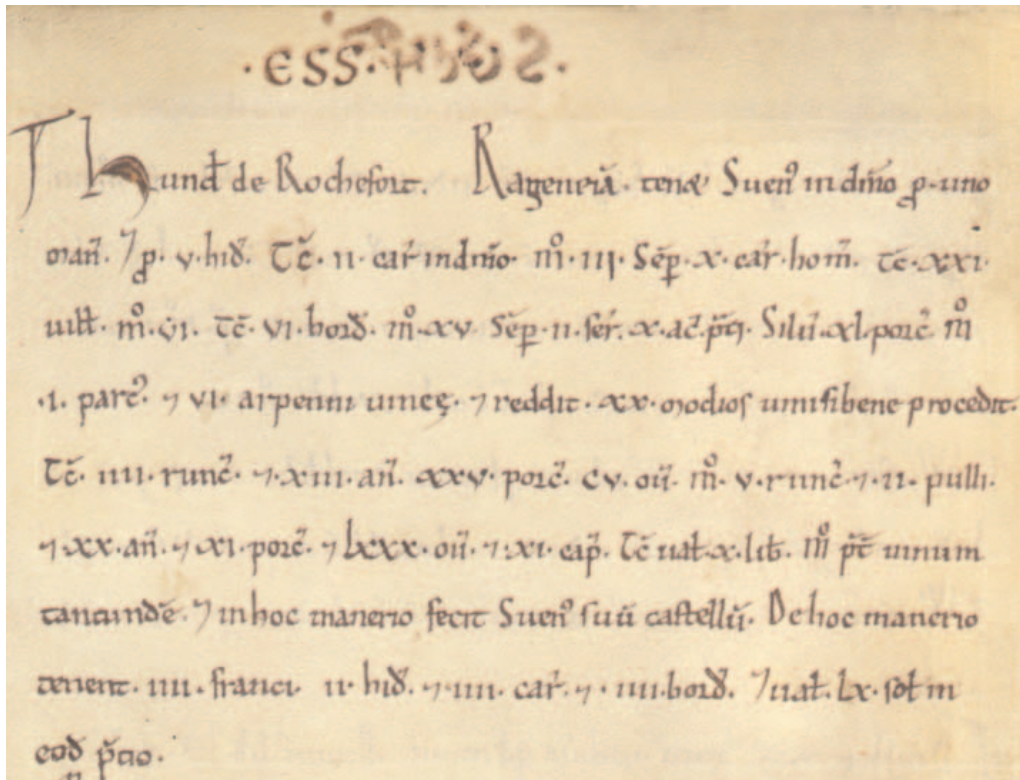 ·ESS·
Hund̄ de Rochefort. Rageneiā· tenæ Suen⁹ in dm̄io ꝑ· uno
man̄. ⁊ ꝑ· v· hid̄. Tc̄· ii· car̄ in dm̄io· m̊· iii· Sēꝑ· x· car̄· hom̄. Tc̄· xxi·
uiłł. m̊· vi. Tc̄· vi· bord̄. m̊· xv Sēꝑ· ii· ser̄. x· ac̄. p̄ti. Silū· xl· porc̄ m̊
·i· parc⁹· ⁊ vi· arpenni uineę· ⁊ reddit· xx· modios uini si bene procedit·
Tc̄· iiii· runc̄· ⁊ xiii· an̄. xxv· porc̄· cv· oū. m̊· v· runc̄· ⁊· ii· pulli·
⁊ xx· an̄· ⁊ xi· porc̄· ⁊ lxxx· oū· ⁊ xi· cap̄. Tc̄ uał· x· lib̄. m̊ p̄t uinum
tantundē· ⁊ in hoc manerio fecit Suen⁹ suū castellū. De hoc manerio
tenent· iiii· franci· ii· hid̄· ⁊ iiii· car̄· ⁊ · iiii· bord̄. ⁊ uał· lx· soł in
eod̄ p̄tio·